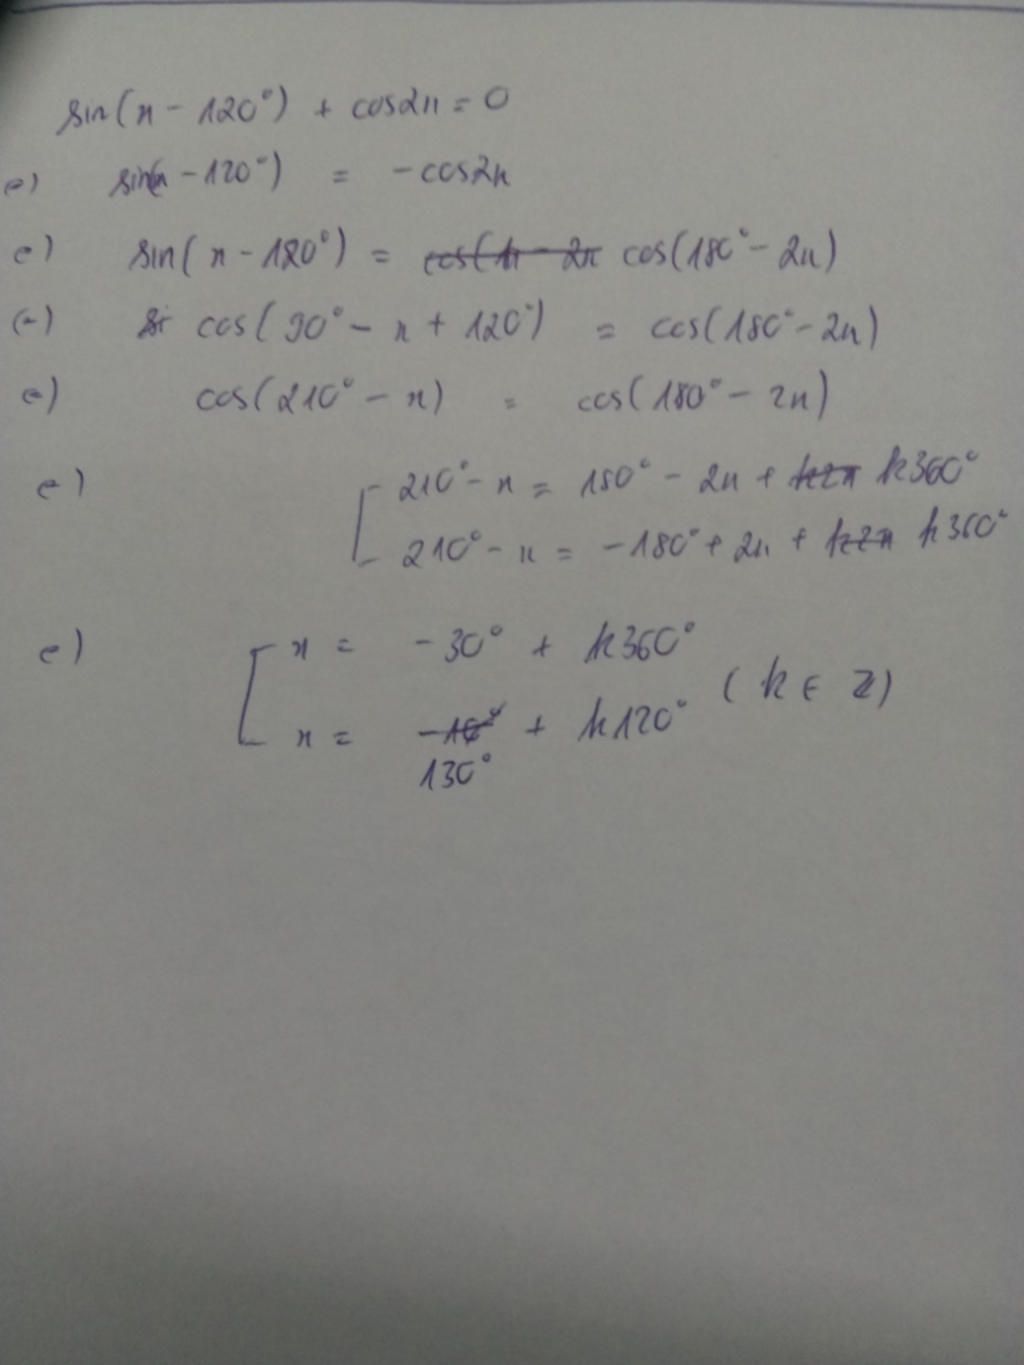 sin(x - 120°) + cos2x = 0
(=) sin(x - 120°) = - cos2x
(=) sin(x - 120°) = cos(180° - 2x)
(=) cos(90° - x + 120°) = cos(180° - 2x)
(=) cos(210° - x) = cos(180° - 2x)
(=) [ 210° - x = 180° - 2x + k360°
210° - x = -180° + 2x + k360°
(=) [ x = -30° + k360°
x = 130° + k120° (k ∈ Z)